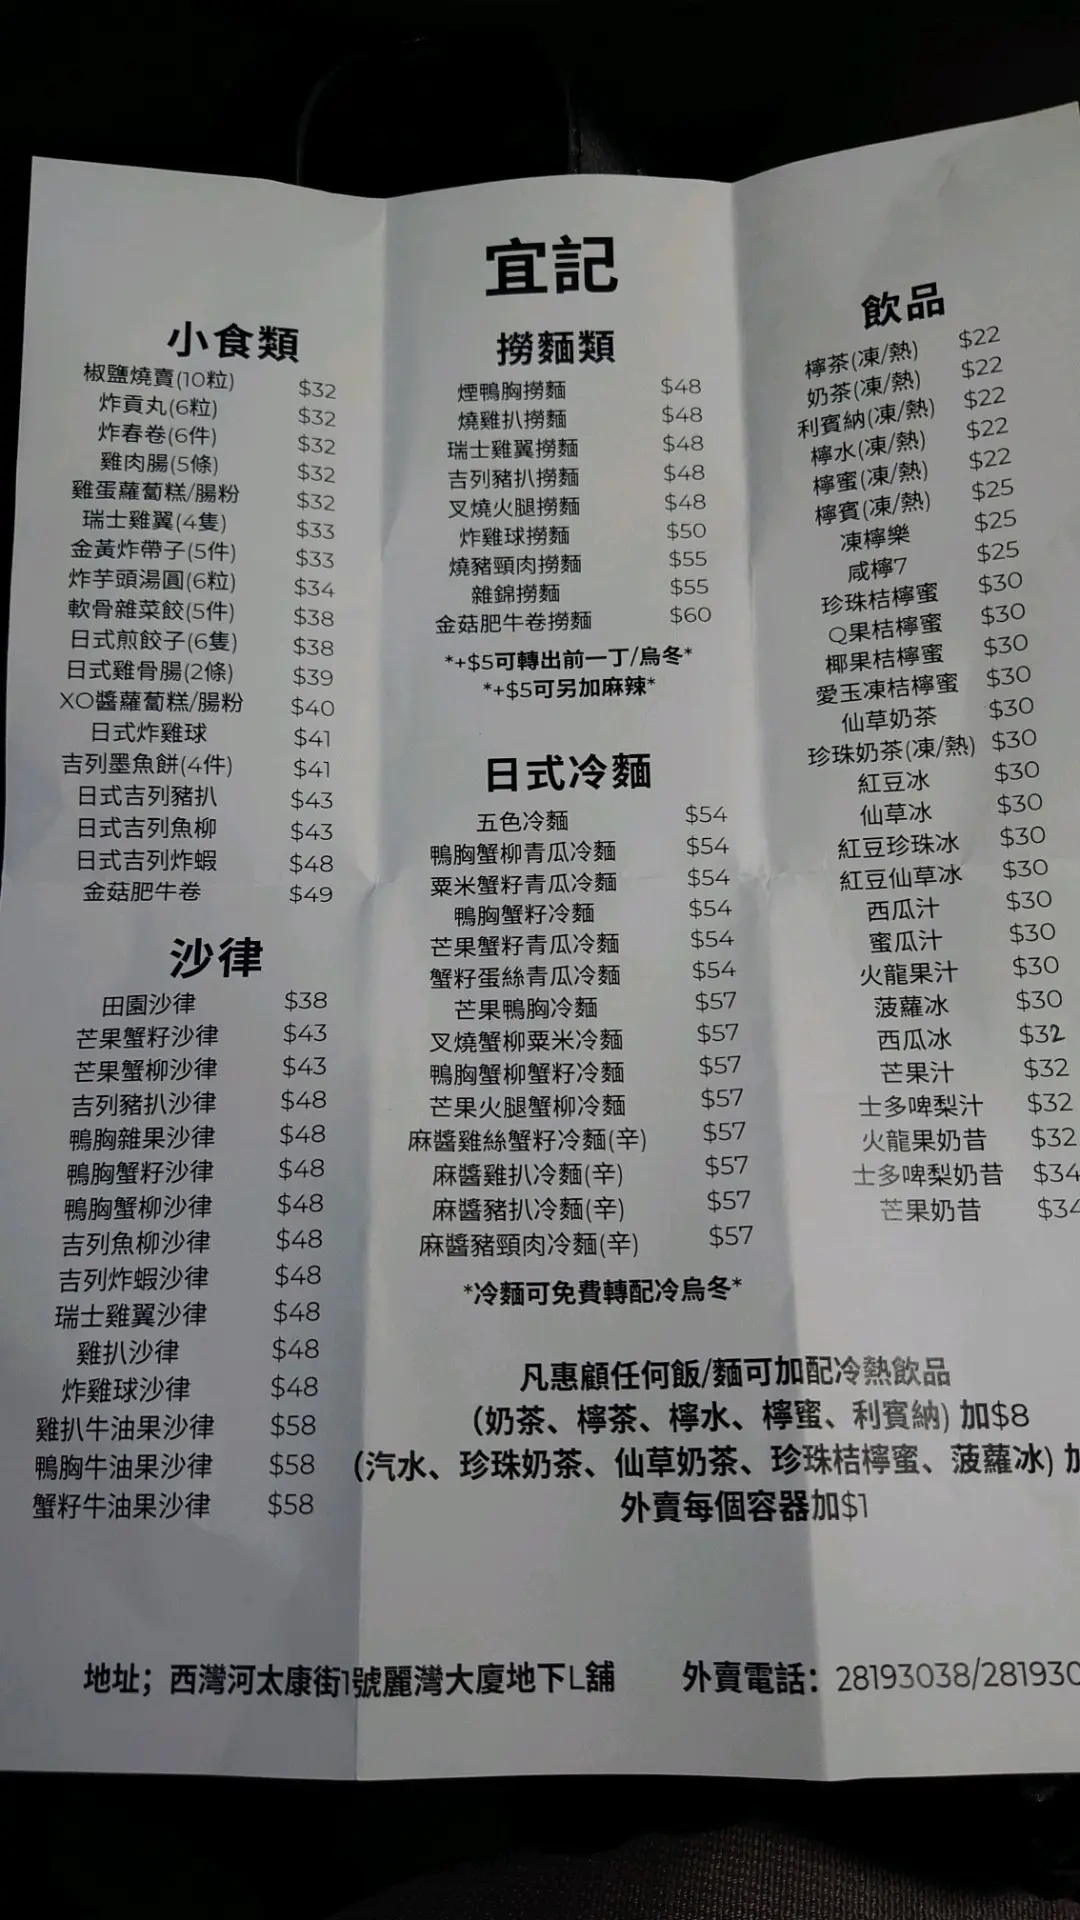 宜記
小食類
椒鹽燒賣(10粒) $32
炸貢丸(6粒) $32
炸春卷(6件) $32
雞肉腸(5條) $32
雞蛋蘿蔔糕/腸粉 $32
瑞士雞翼(4隻) $33
金黃炸帶子(5件) $33
炸芋頭湯圓(6粒) $34
軟骨雜菜餃(5件) $38
日式煎餃子(6隻) $38
日式雞骨腸(2條) $39
XO醬蘿蔔糕/腸粉 $40
日式炸雞球 $41
吉列墨魚餅(4件) $41
日式吉列豬扒 $43
日式吉列魚柳 $43
日式吉列炸蝦 $48
金菇肥牛卷 $49
沙律
田園沙律 $38
芒果蟹籽沙律 $43
芒果蟹柳沙律 $43
吉列豬扒沙律 $48
鴨胸雜果沙律 $48
鴨胸蟹籽沙律 $48
鴨胸蟹柳沙律 $48
吉列魚柳沙律 $48
吉列炸蝦沙律 $48
瑞士雞翼沙律 $48
雞扒沙律 $48
炸雞球沙律 $48
雞扒牛油果沙律 $58
鴨胸牛油果沙律 $58
蟹籽牛油果沙律 $58
撈麵類
煙鴨胸撈麵 $48
燒雞扒撈麵 $48
瑞士雞翼撈麵 $48
吉列豬扒撈麵 $48
叉燒火腿撈麵 $48
炸雞球撈麵 $50
燒豬頸肉撈麵 $55
雜錦撈麵 $55
金菇肥牛卷撈麵 $60
*+$5可轉出前一丁/烏冬*
*+$5可另加麻辣*
日式冷麵
五色冷麵 $54
鴨胸蟹柳青瓜冷麵 $54
粟米蟹籽青瓜冷麵 $54
鴨胸蟹籽冷麵 $54
芒果蟹籽青瓜冷麵 $54
蟹籽蛋絲青瓜冷麵 $54
芒果鴨胸冷麵 $57
叉燒蟹柳粟米冷麵 $57
鴨胸蟹柳蟹籽冷麵 $57
芒果火腿蟹柳冷麵 $57
麻醬雞絲蟹籽冷麵(辛) $57
麻醬雞扒冷麵(辛) $57
麻醬豬扒冷麵(辛) $57
麻醬豬頸肉冷麵(辛) $57
*冷麵可免費轉配冷烏冬*
飲品
檸茶(凍/熱) $22
奶茶(凍/熱) $22
利賓納(凍/熱) $22
檸水(凍/熱) $22
檸蜜(凍/熱) $22
檸賓(凍/熱) $25
凍檸樂 $25
咸檸7 $25
珍珠桔檸蜜 $30
Q果桔檸蜜 $30
椰果桔檸蜜 $30
愛玉凍桔檸蜜 $30
仙草奶茶 $30
珍珠奶茶(凍/熱) $30
紅豆冰 $30
仙草冰 $30
紅豆珍珠冰 $30
紅豆仙草冰 $30
西瓜汁 $30
蜜瓜汁 $30
火龍果汁 $30
菠蘿冰 $30
西瓜冰 $32
芒果汁 $32
士多啤梨汁 $32
火龍果奶昔 $32
士多啤梨奶昔 $34
芒果奶昔 $34
凡惠顧任何飯/麵可加配冷熱飲品
(奶茶、檸茶、檸水、檸蜜、利賓納) 加$8
(汽水、珍珠奶茶、仙草奶茶、珍珠桔檸蜜、菠蘿冰) 加
外賣每個容器加$1
地址；西灣河太康街1號麗灣大廈地下L舖 外賣電話：28193038/281930